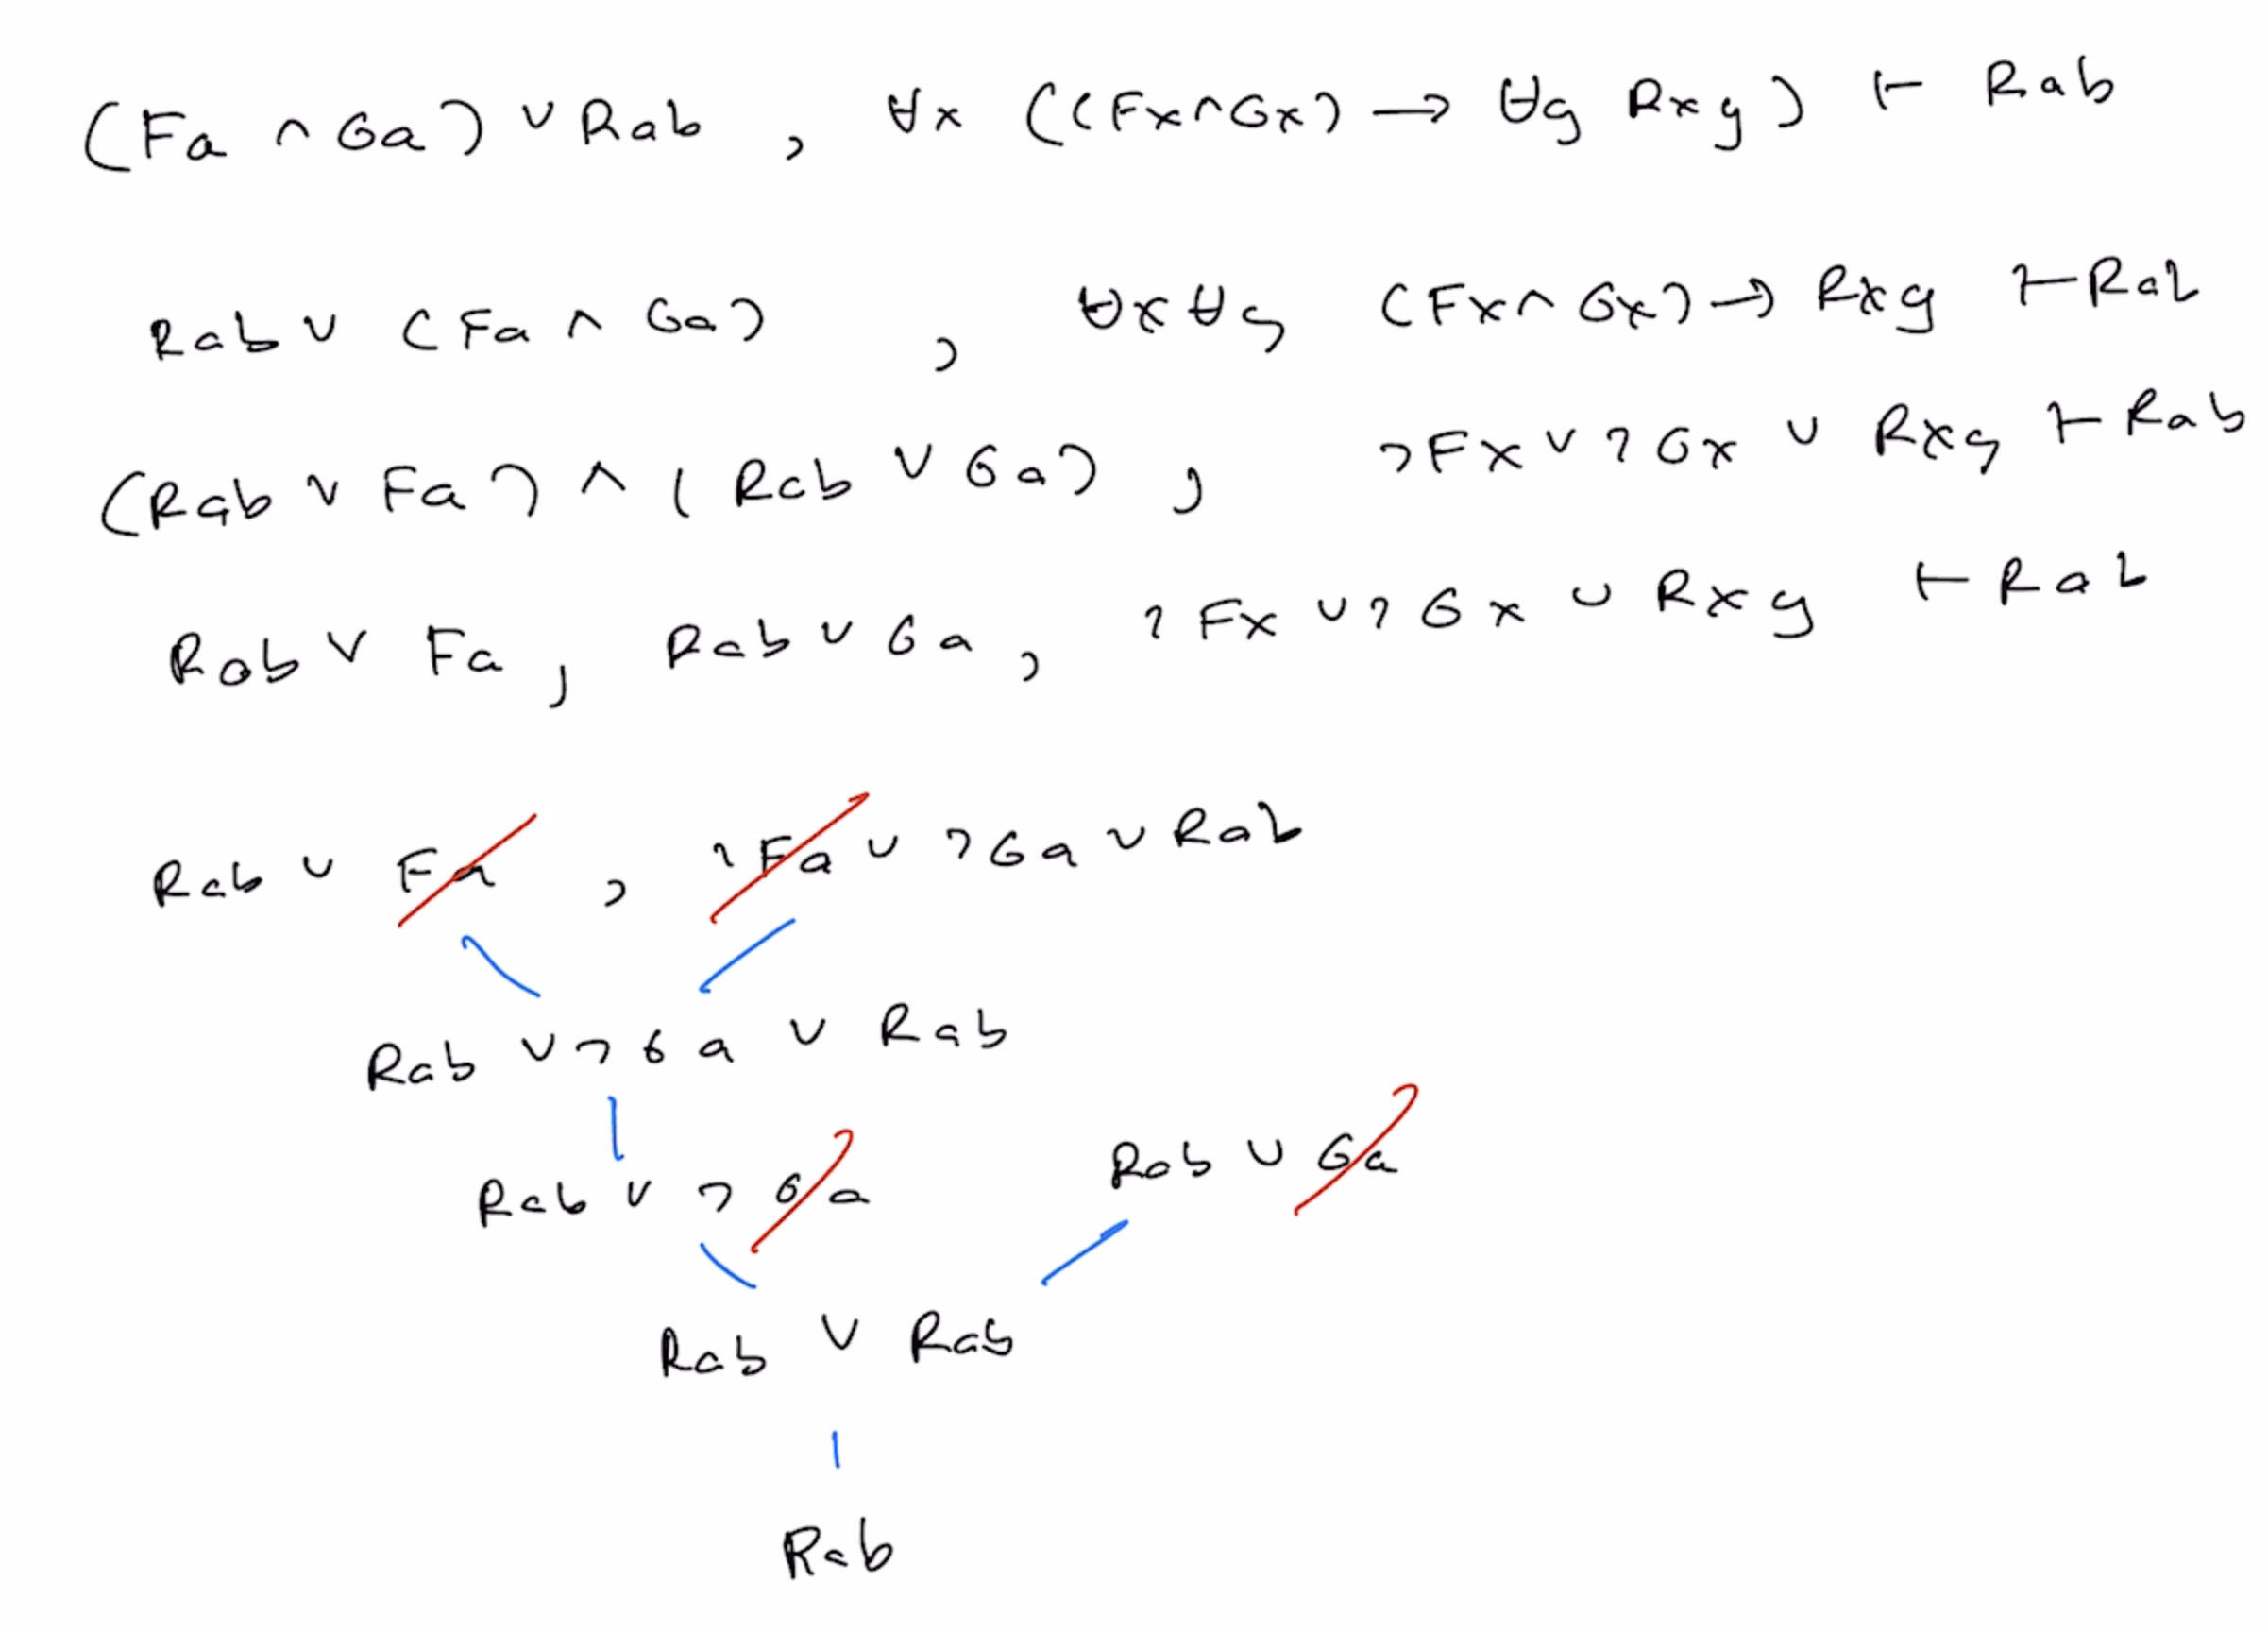 (Fa ∧ Ga) ∨ Rab , ∀x ((Fx∧Gx) → ∀y Rxy) ⊢ Rab
Rab ∨ (Fa ∧ Ga) , ∀x∀y (Fx∧Gx) → Rxy ⊢ Rab
(Rab ∨ Fa) ∧ (Rab ∨ Ga) , ¬Fx ∨ ¬Gx ∨ Rxy ⊢ Rab
Rab ∨ Fa , Rab ∨ Ga , ¬Fx ∨ ¬Gx ∨ Rxy ⊢ Rab
Rab ∨ Fa , ¬Fa ∨ ¬Ga ∨ Rab
Rab ∨ ¬Ga ∨ Rab
Rab ∨ ¬Ga Rab ∨ Ga
Rab ∨ Rab
Rab